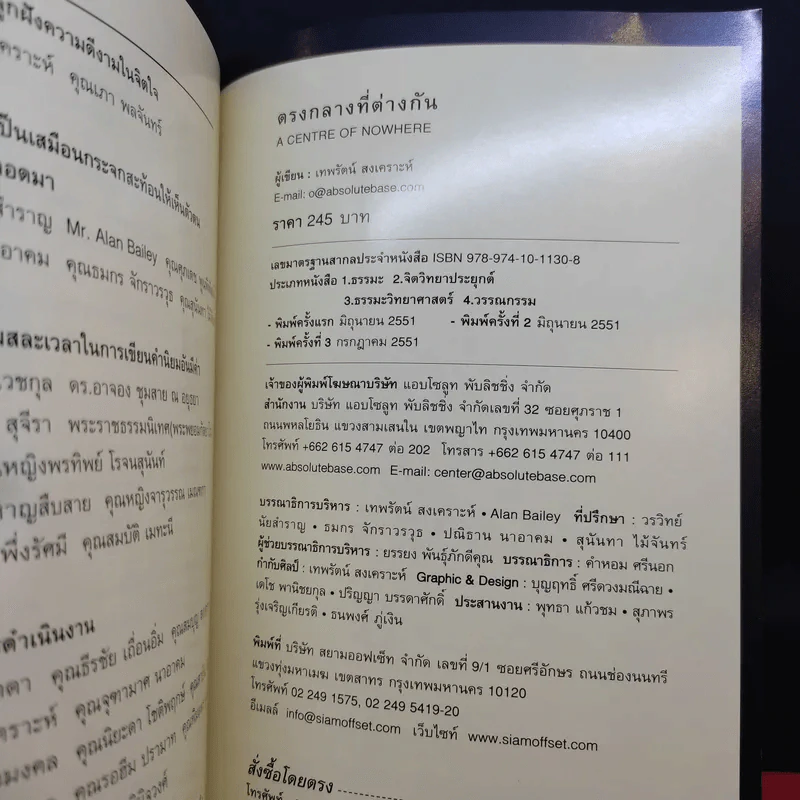 ลูกฝังความดีงามในจิตใจ
คราะห์ คุณเภา พลจันทร์
ป็นเสมือนกระจกสะท้อนให้เห็นตัวตน
อดมา
สำราญ Mr. Alan Bailey
อาคม คุณธมกร จักราวรวุธ
สละเวลาในการเขียนคำนิยมอันมีค่า
วชกุล ดร.อาจอง ชุมสาย ณ อยุธยา
สุจีรา พระราชธรรมนิเทศ
หญิงพรทิพย์ โรจนสุนันท์
าญสืบสาย คุณหญิงจารุวรรณ เมณฑกา
พึ่งรัศมี คุณสมบัติ เมทะนี
ดำเนินงาน
ดา คุณธีรชัย เถื่อนอิ่ม
คราะห์ คุณจุฑามาศ นาอาคม
มงคล คุณนิยะดา โชติพฤกษ์
คุณรอฮีม ปรามาท
ตรงกลางที่ต่างกัน
A CENTRE OF NOWHERE
ผู้เขียน : เทพรัตน์ สงเคราะห์
E-mail: o@absolutebase.com
ราคา 245 บาท
เลขมาตรฐานสากลประจำหนังสือ ISBN 978-974-10-1130-8
ประเภทหนังสือ 1.ธรรมะ 2.จิตวิทยาประยุกต์
3.ธรรมะวิทยาศาสตร์ 4.วรรณกรรม
- พิมพ์ครั้งแรก มิถุนายน 2551 - พิมพ์ครั้งที่ 2 มิถุนายน 2551
- พิมพ์ครั้งที่ 3 กรกฎาคม 2551
เจ้าของผู้พิมพ์โฆษณาบริษัท แอบโซลูท พับลิชชิ่ง จำกัด
สำนักงาน บริษัท แอบโซลูท พับลิชชิ่ง จำกัดเลขที่ 32 ซอยศุภราช 1
ถนนพหลโยธิน แขวงสามเสนใน เขตพญาไท กรุงเทพมหานคร 10400
โทรศัพท์ +662 615 4747 ต่อ 202 โทรสาร +662 615 4747 ต่อ 111
www.absolutebase.com E-mail: center@absolutebase.com
บรรณาธิการบริหาร : เทพรัตน์ สงเคราะห์ • Alan Bailey ที่ปรึกษา : วรวิทย์
นัยสำราญ • ธมกร จักราวรวุธ • ปณิธาน นาอาคม • สุนันทา ไม้จันทร์
ผู้ช่วยบรรณาธิการบริหาร : ยรรยง พันธุ์ภักดีคุณ บรรณาธิการ : คำหอม ศรีนอก
กำกับศิลป์ : เทพรัตน์ สงเคราะห์ Graphic & Design : บุญฤทธิ์ ศรีดวงมณีฉาย •
เดโช พานิชยกุล • ปริญญา บรรดาศักดิ์ ประสานงาน : พุทธา แก้วชม • สุภาพร
รุ่งเจริญเกียรติ • ธนพงศ์ ภู่เงิน
พิมพ์ที่ บริษัท สยามออฟเซ็ท จำกัด เลขที่ 9/1 ซอยศรีอักษร ถนนช่องนนทรี
แขวงทุ่งมหาเมฆ เขตสาทร กรุงเทพมหานคร 10120
โทรศัพท์ 02 249 1575, 02 249 5419-20
อีเมลล์ info@siamoffset.com เว็บไซท์ www.siamoffset.com
สั่งซื้อโดยตรง
โทรศัพท์